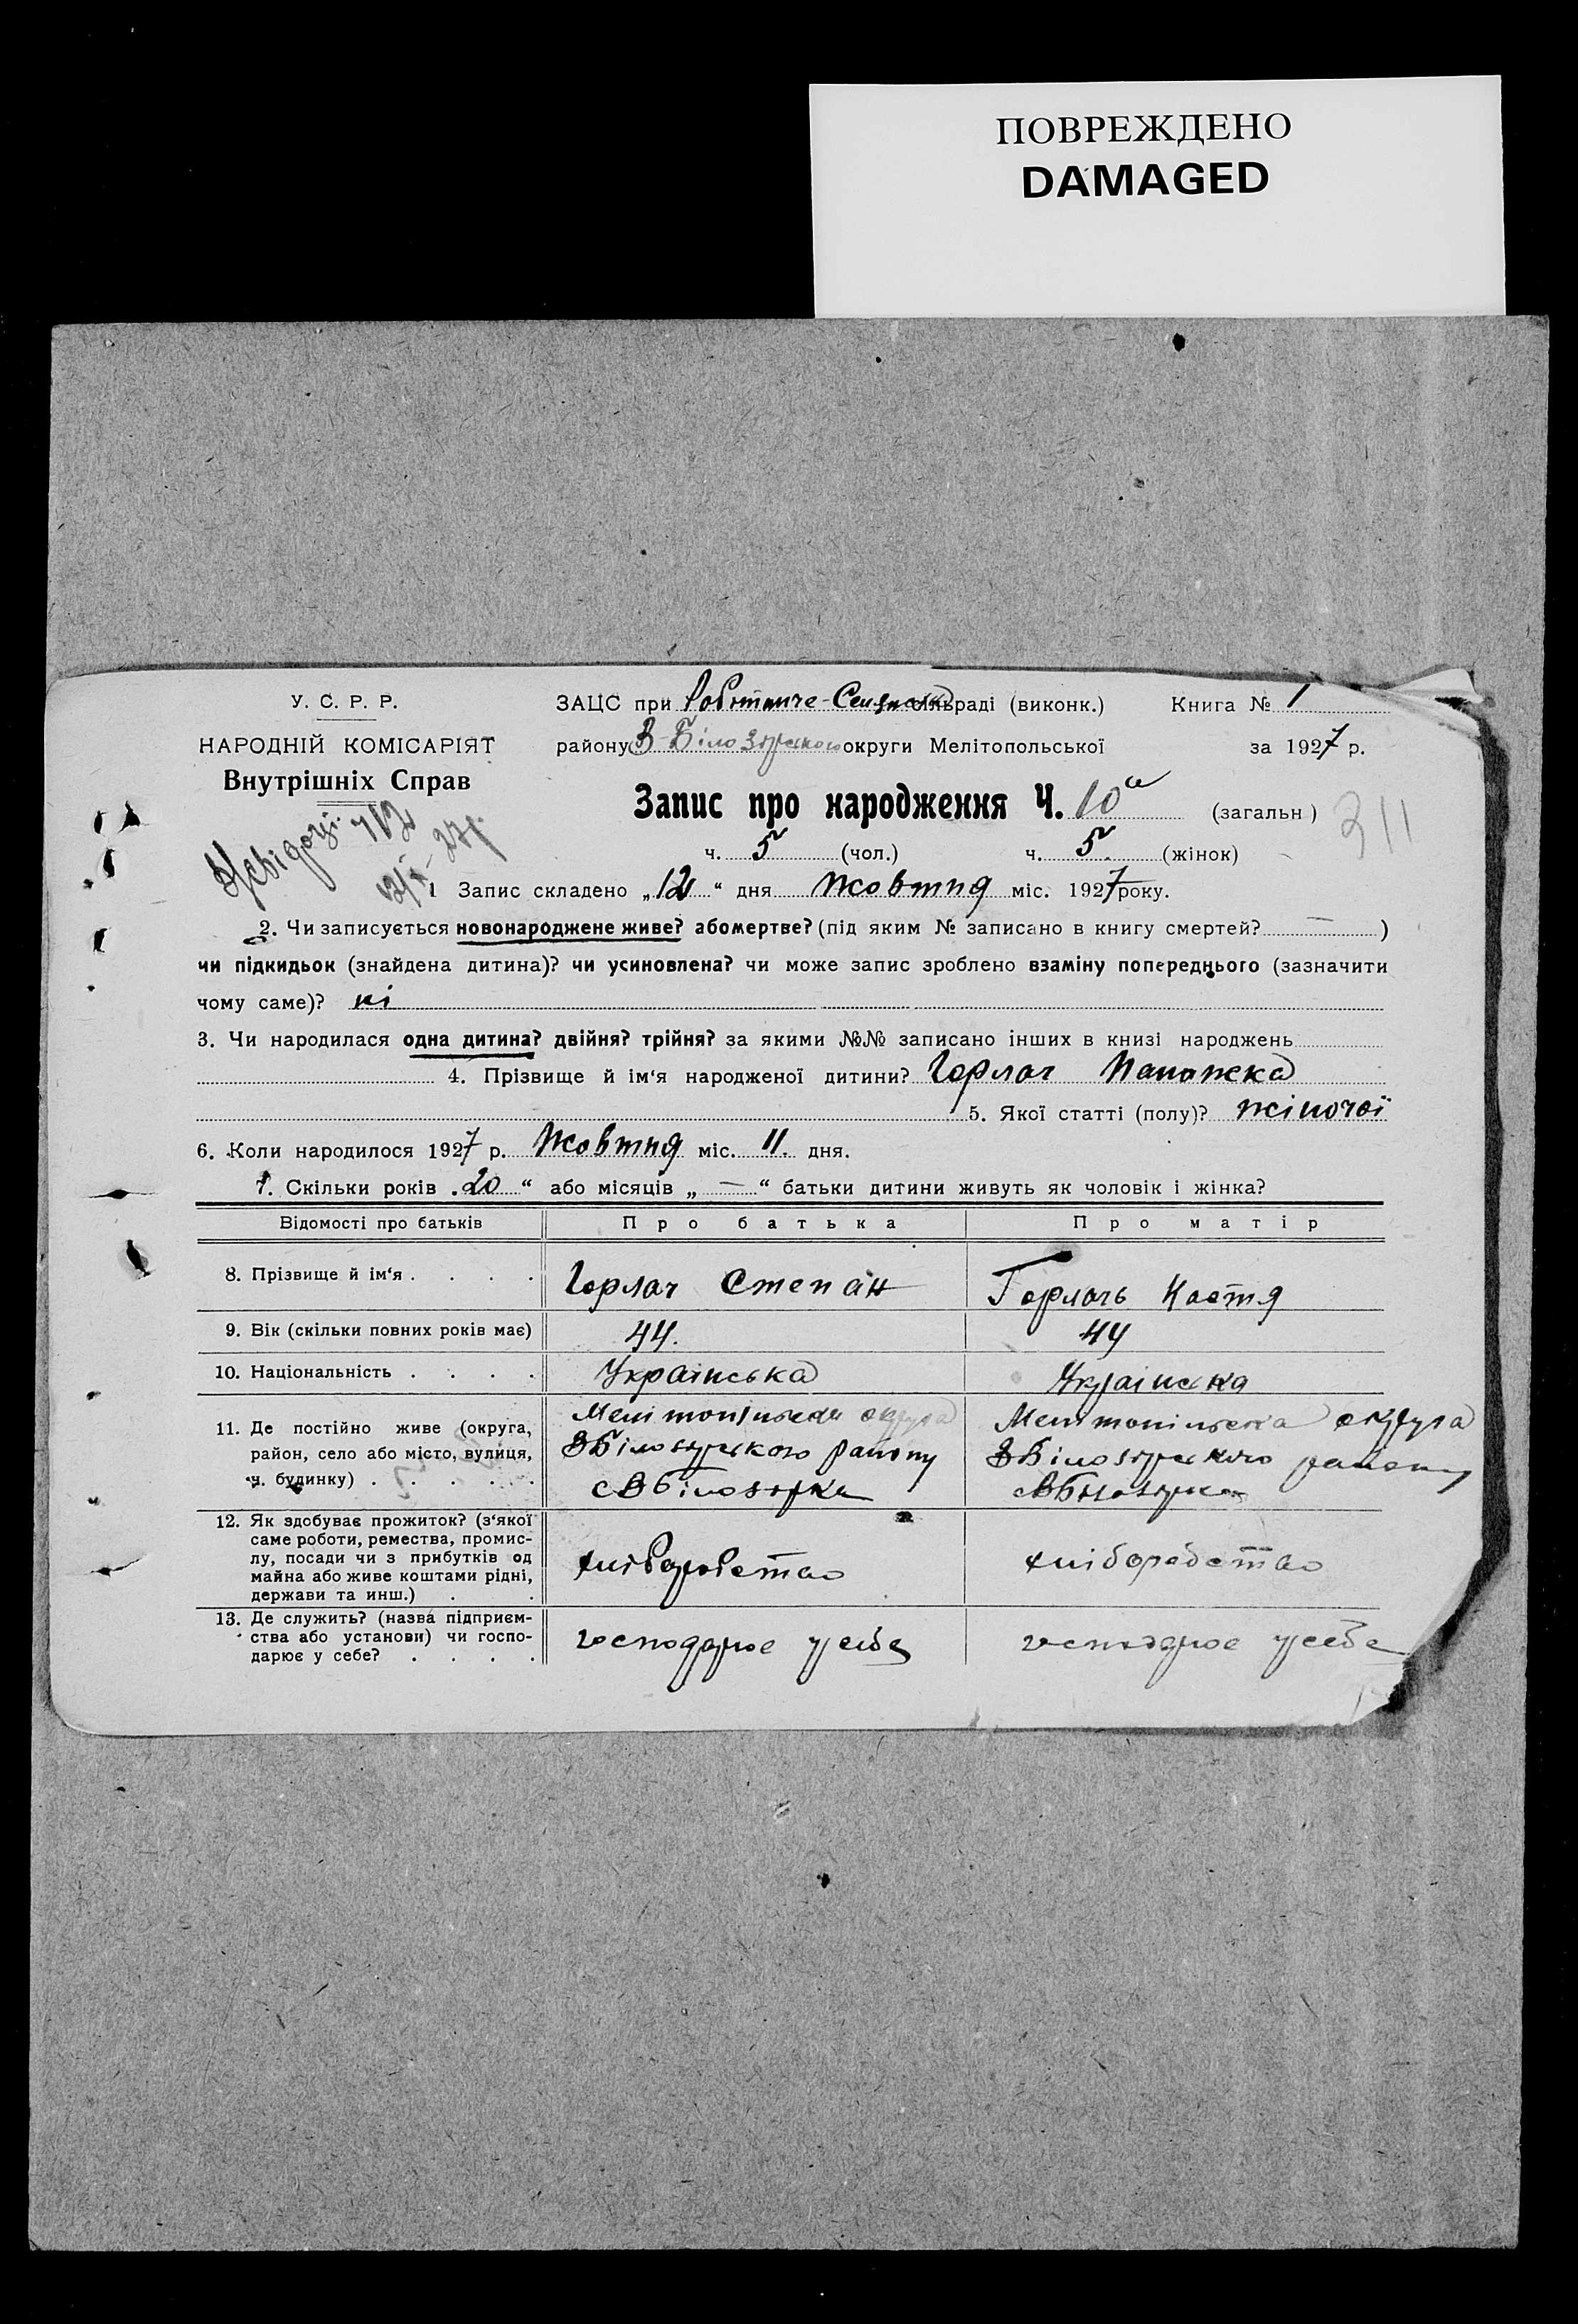 ПОВРЕЖДЕНО
DAMAGED
У. С. Р. Р.
НАРОДНІЙ КОМІСАРІЯТ
Внутрішніх Справ
ЗАЦС при раді (виконк.) Книга № 1
району В-Білозірського округи Мелітопольської за 1927 р.
Запис про народження Ч. 10а (загальн)
311
ч. 5 (чол.) ч. 5 (жінок)
1 Запис складено „12“ дня Жовтня міс. 1927 року.
2. Чи записується новонароджене живе? або мертве? (під яким № записано в книгу смертей? — )
чи підкидьок (знайдена дитина)? чи усиновлена? чи може запис зроблено взаміну попереднього (зазначити
чому саме)? ні
3. Чи народилася одна дитина? двійня? трійня? за якими №№ записано інших в книзі народжень
4. Прізвище й ім‘я народженої дитини? Горлач
5. Якої статті (полу)? жіночої
6. Коли народилося 1927 р. Жовтня міс. 11. дня.
7. Скільки років „20“ або місяців „ — “ батьки дитини живуть як чоловік і жінка?
Відомості про батьків Про батька Про матір
8. Прізвище й ім‘я . . . . Горлач Степан Горлачь Костя
9. Вік (скільки повних років має) 44. 44
10. Національність . . . . Українська Українська
11. Де постійно живе (округа, район, село або місто, вулиця, ч. будинку) . . . . .
Мелітопільська округа
ВБілозірського району
с ВБілозірка
Мелітопільська округа
ВБілозірського району
с ВБілозірка
12. Як здобуває прожиток? (з‘якої
саме роботи, ремества, промис-
лу, посади чи з прибутків од
майна або живе коштами рідні,
держави та инш.) . .
хліборобство хліборобство
13. Де служить? (назва підприєм-
ства або установи) чи госпо-
дарює у себе? . . . .
господарює у себе господарює у себе